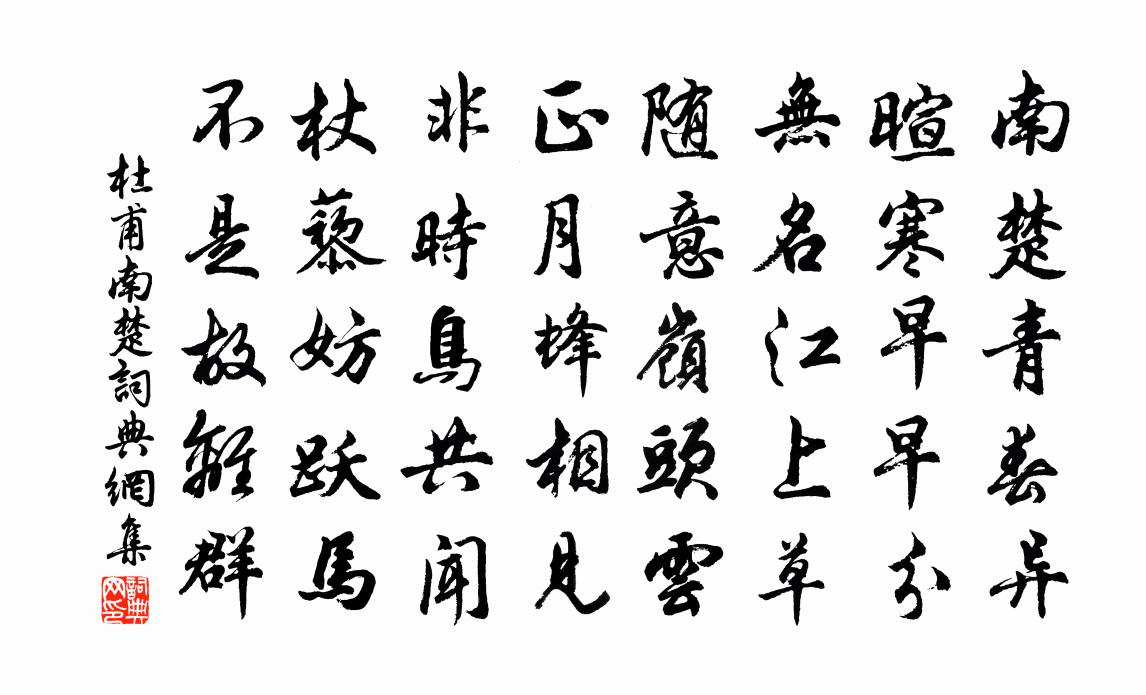 南楚青春异
暄寒早早分
無名江上草
随意嶺頭雲
正月蜂相見
非時鳥共聞
杖藜妨跃馬
不是故離群
杜甫南楚詞典網集
詞典网印